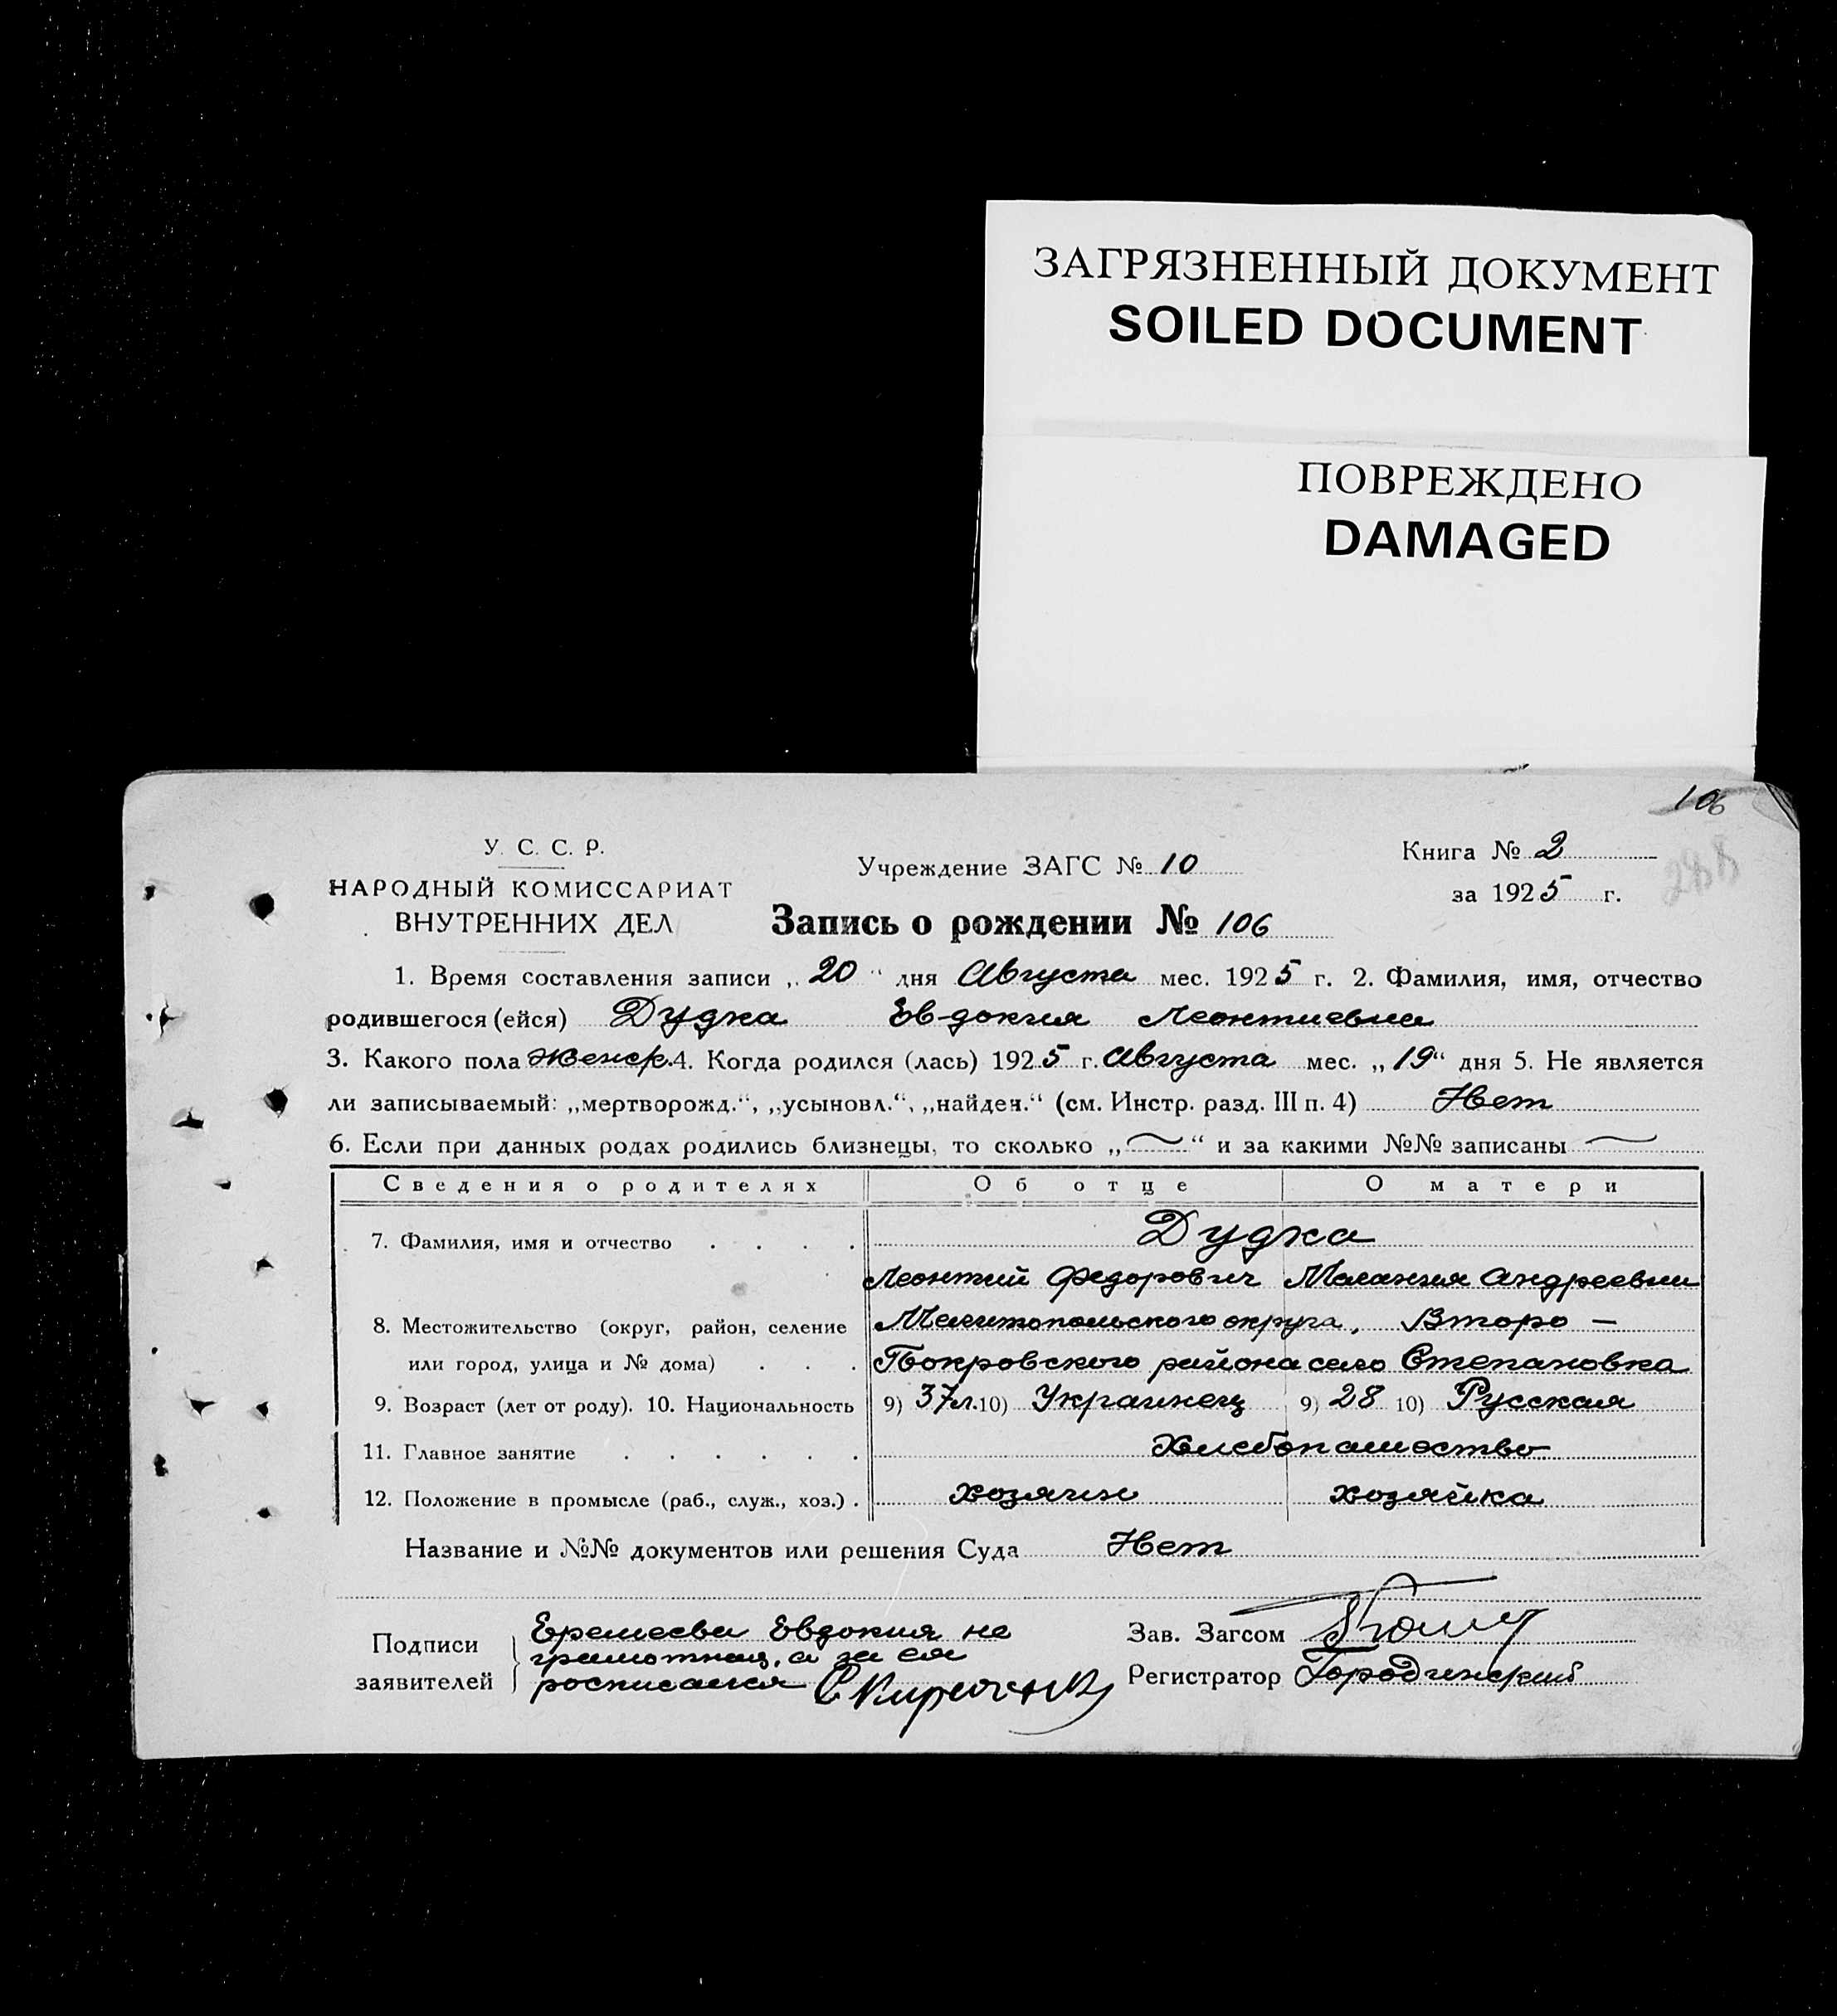 ЗАГРЯЗНЕННЫЙ ДОКУМЕНТ
SOILED DOCUMENT
ПОВРЕЖДЕНО
DAMAGED
106
У. С. С. Р.
НАРОДНЫЙ КОМИССАРИАТ
ВНУТРЕННИХ ДЕЛ
Учреждение ЗАГС № 10
Книга № 2
за 1925 г.
Запись о рождении № 106
1. Время составления записи „20“ дня Августа мес. 1925 г. 2. Фамилия, имя, отчество
родившегося (ейся) Дудка Евдокия Леонтиевна
3. Какого пола женск. 4. Когда родился (лась) 1925 г. Августа мес. „19“ дня 5. Не является
ли записываемый: „мертворожд.“, „усыновл.“, „найден.“ (см. Инстр. разд. III п. 4) Нет
6. Если при данных родах родились близнецы, то сколько „—“ и за какими №№ записаны —
Сведения о родителях Об отце О матери
7. Фамилия, имя и отчество . . . . Дудка
Леонтий Федорович Малания Андреевна
8. Местожительство (округ, район, селение Мелитопольского округа, Второ —
или город, улица и № дома) . . . Покровского района село Степановка
9. Возраст (лет от роду). 10. Национальность 9) 37 л. 10) Украинец 9) 28 10) Русская
11. Главное занятие . . . . . . Хлебопашество
12. Положение в промысле (раб., служ., хоз.) . хозяин хозяйка
Название и №№ документов или решения Суда Нет
Подписи
заявителей
Еремеева Евдокия не
грамотная, а за ея
росписался
Зав. Загсом
Регистратор Городинский